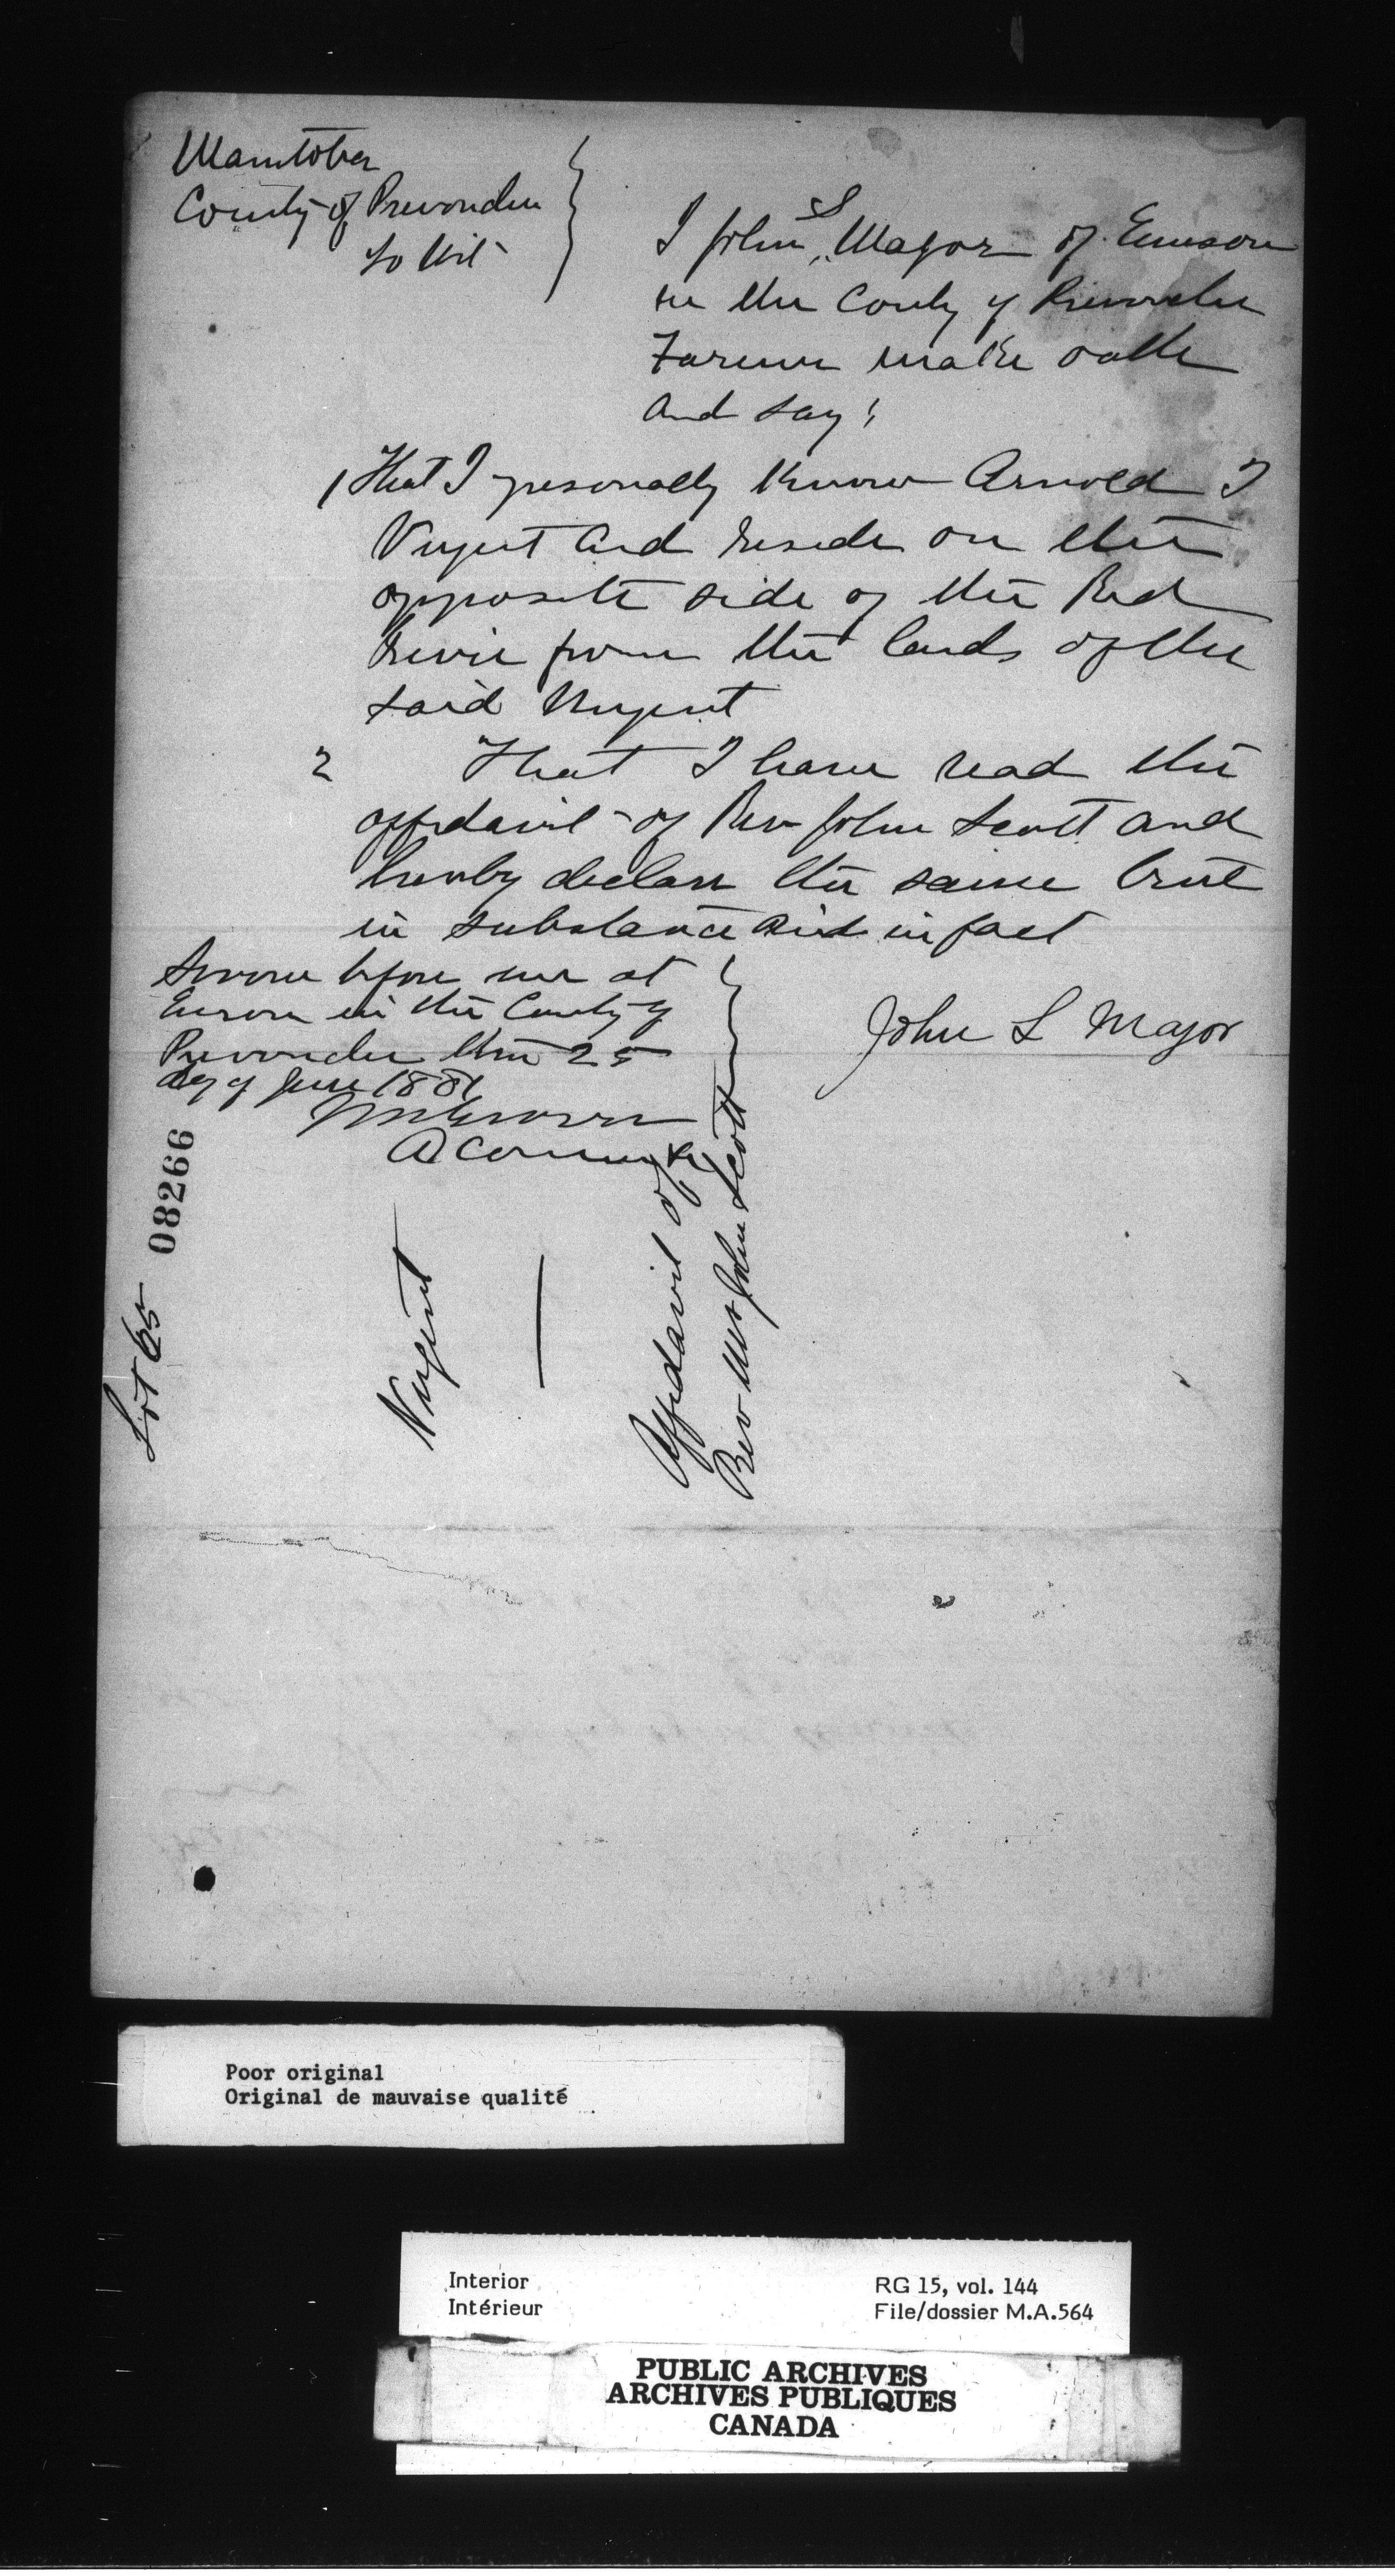 Manitoba
County of Provencher
To Wit
I John L Major of Emerson
in the County of Provencher
Farmer make oath
and say;
1 That I personally know Arnold J
Nugent and reside on the
opposite side of the Red
River from the lands of the
said Nugent
2 That I have read the
affidavit of Rev John Scott and
hereby declare the same true
in substance and in fact
Sworn before me at
Emerson in the County of
Provencher this 25
day of June 1881
A Commr
John L Major
08266
Lot 65
Nugent
Affidavit of
Rev John Scott
Poor original
Original de mauvaise qualité
Interior
Intérieur
RG 15, vol. 144
File/dossier M.A.564
PUBLIC ARCHIVES
ARCHIVES PUBLIQUES
CANADA